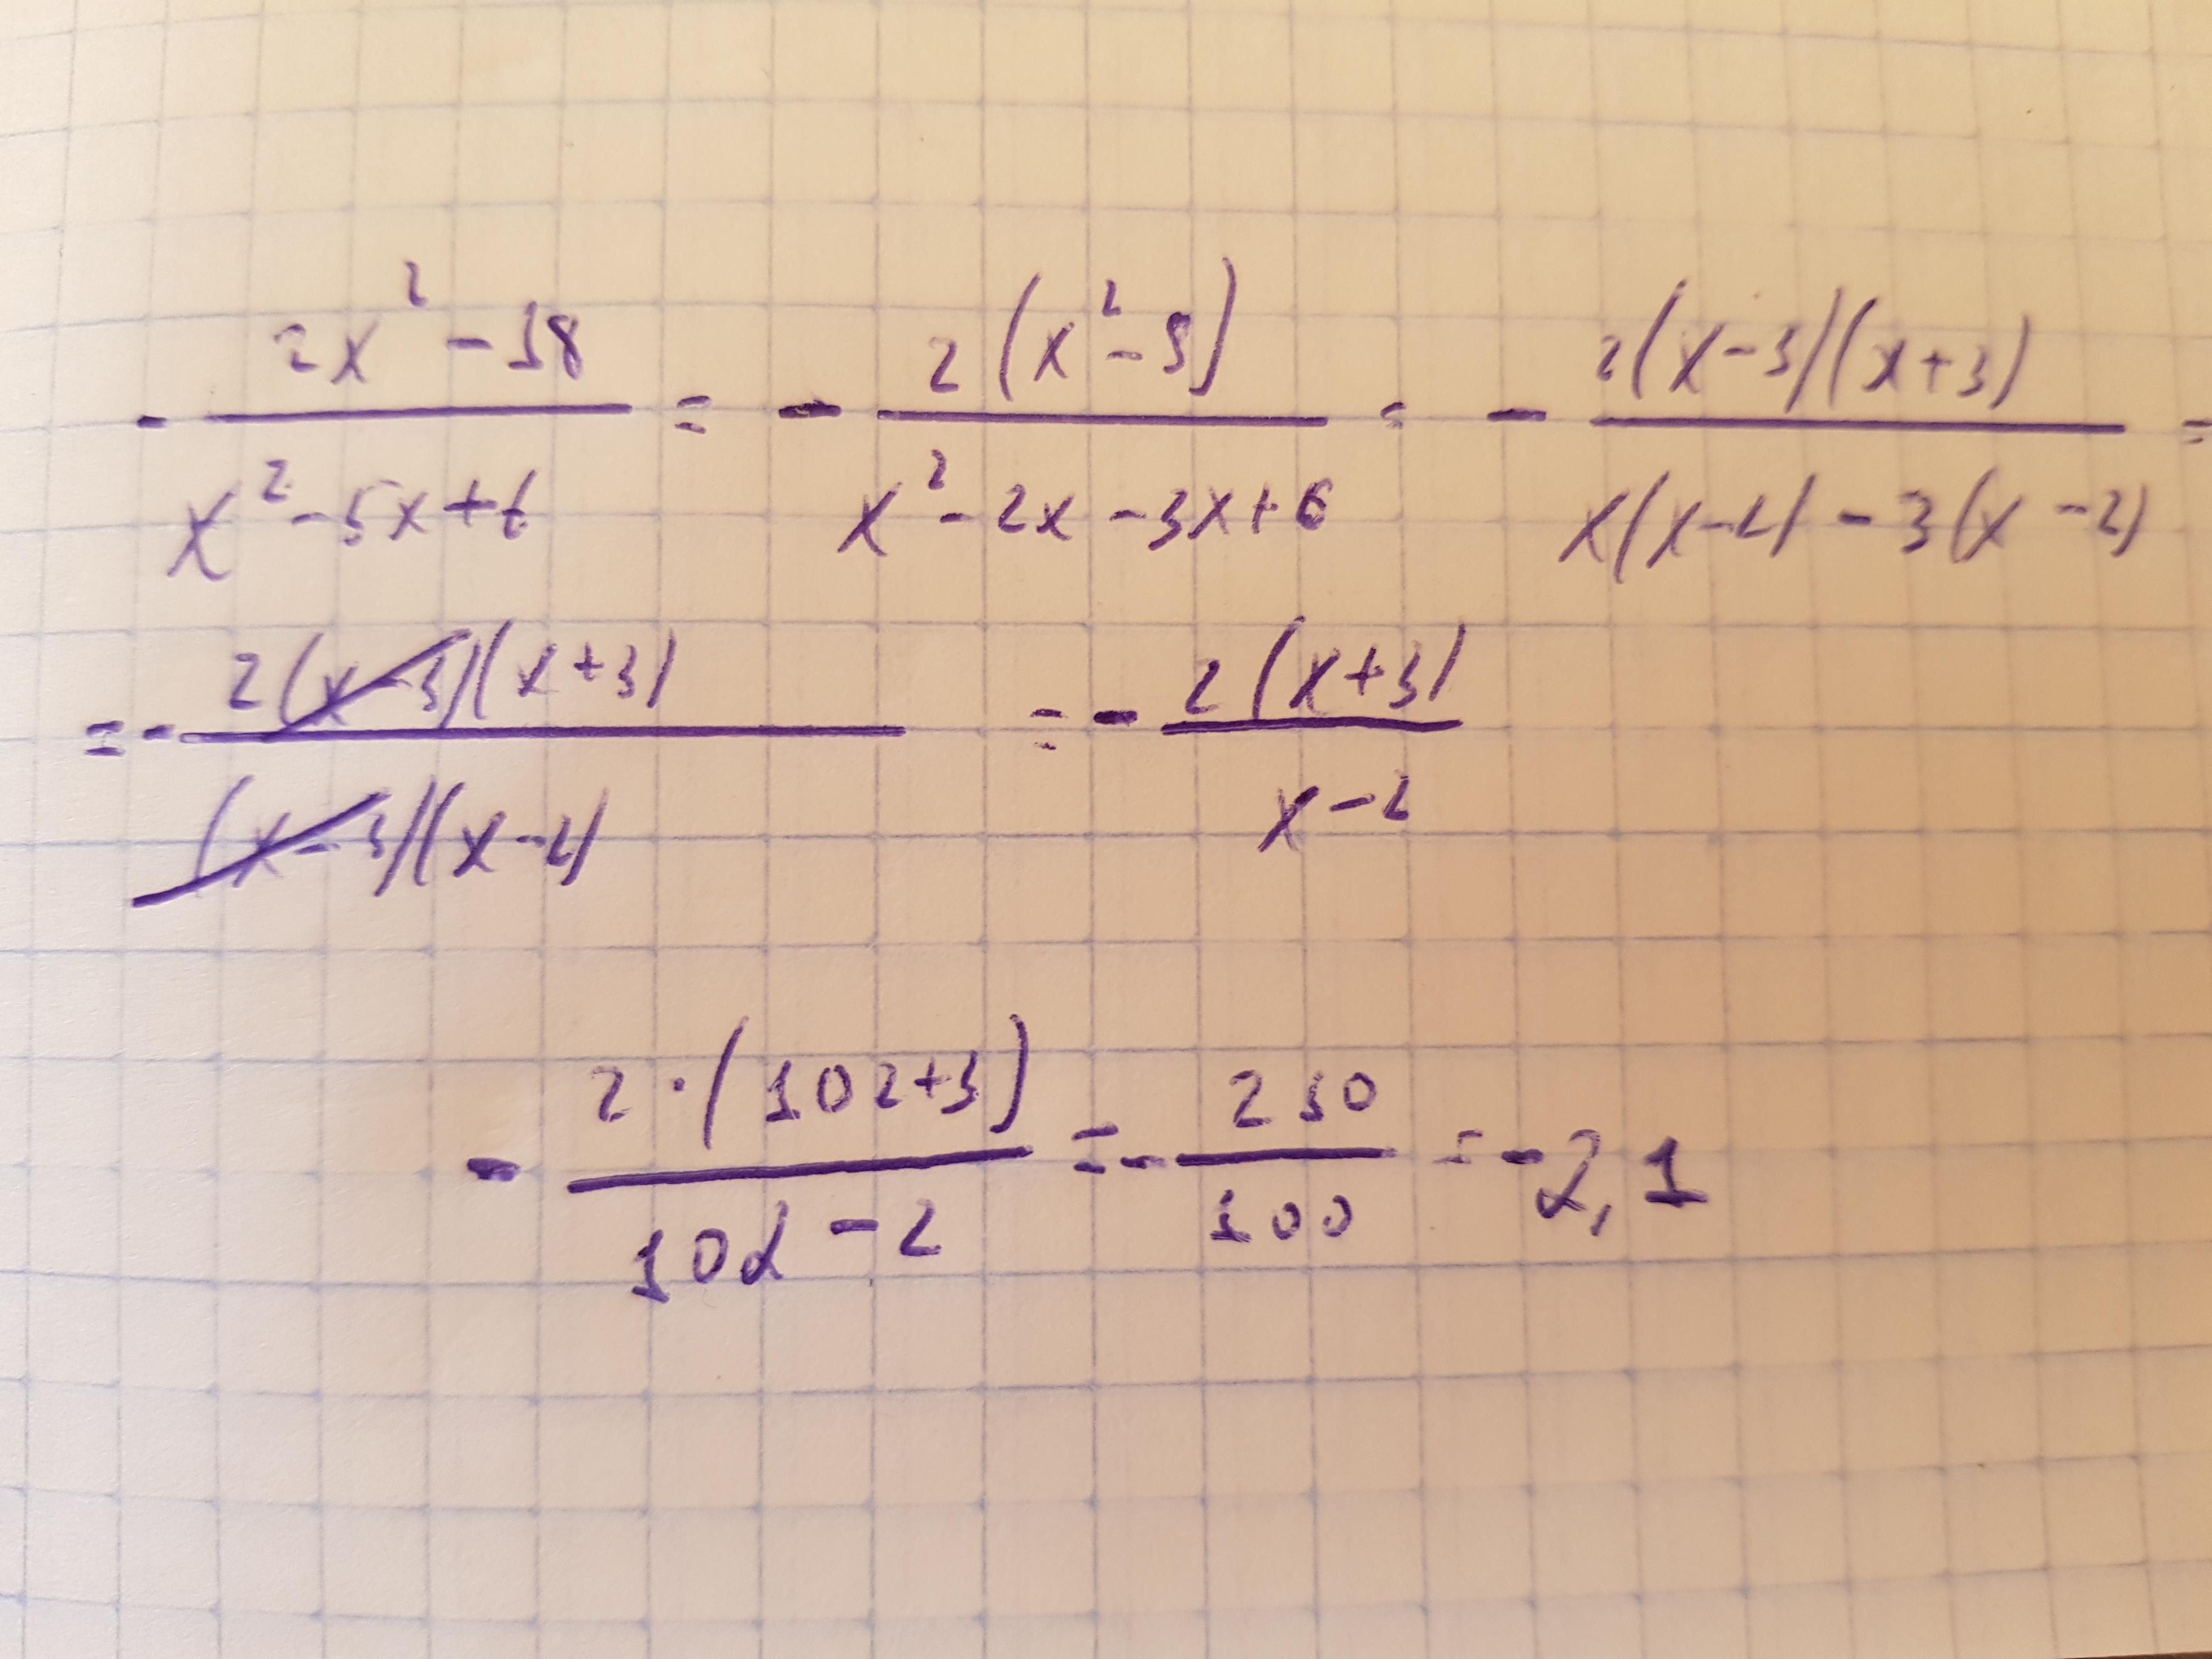 - (2x² - 18)/(x² - 5x + 6) = - (2(x² - 9))/(x² - 2x - 3x + 6) = - (2(x - 3)(x + 3))/(x(x - 2) - 3(x - 2)) =
= - (2(x - 3)(x + 3))/((x - 3)(x - 2)) = - (2(x + 3))/(x - 2)
- (2 · (102 + 3))/(102 - 2) = - 210/100 = - 2,1